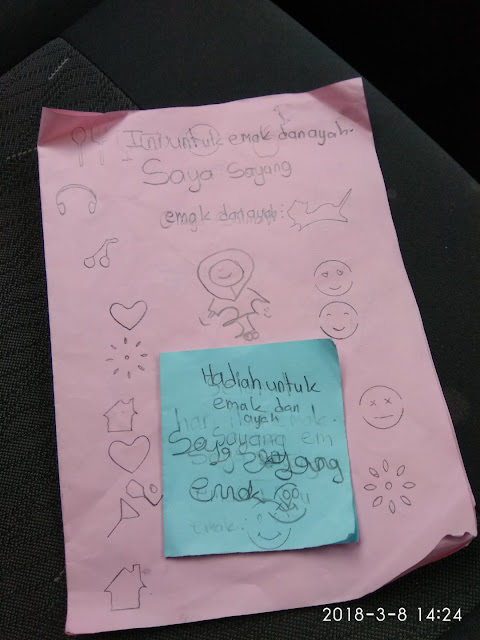 Ini untuk emak dan ayah.
Saya Sayang
emak dan ayah:
Hadiah untuk
emak dan
ayah
Saya Sayang
emak
emak.
2018-3-8 14:24